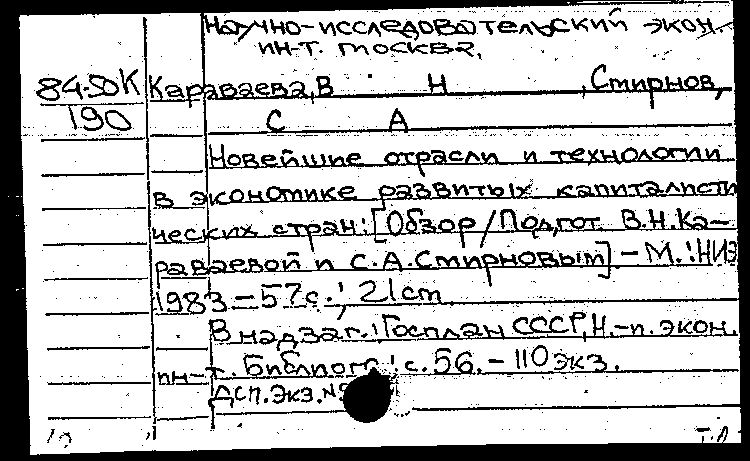 Научно-исследовательский экон.
ин-т. Москва,
84-50К Караваева, В Н , Смирнов,
190 С А
Новейшие отрасли и технологии
в экономике развитых капиталисти
ческих стран: [Обзор/Подгот. В.Н.Ка-
раваевой и С.А.Смирновым]. - М.: НИЭ
1983 - 57с.; 21см
В надзаг.: Госплан СССР, Н.-и. экон.
ин-т. Библиогр.: с.56. - 110экз.
Дсп. Экз. №